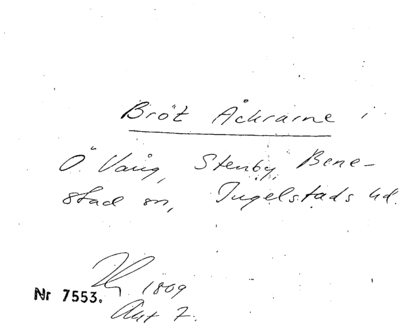 Bröt Åkrarne i
Ö. Vång, Stenby, Bene-
stad sn, Ingelstads hd.
1809
Nr 7553.
Akt 7.